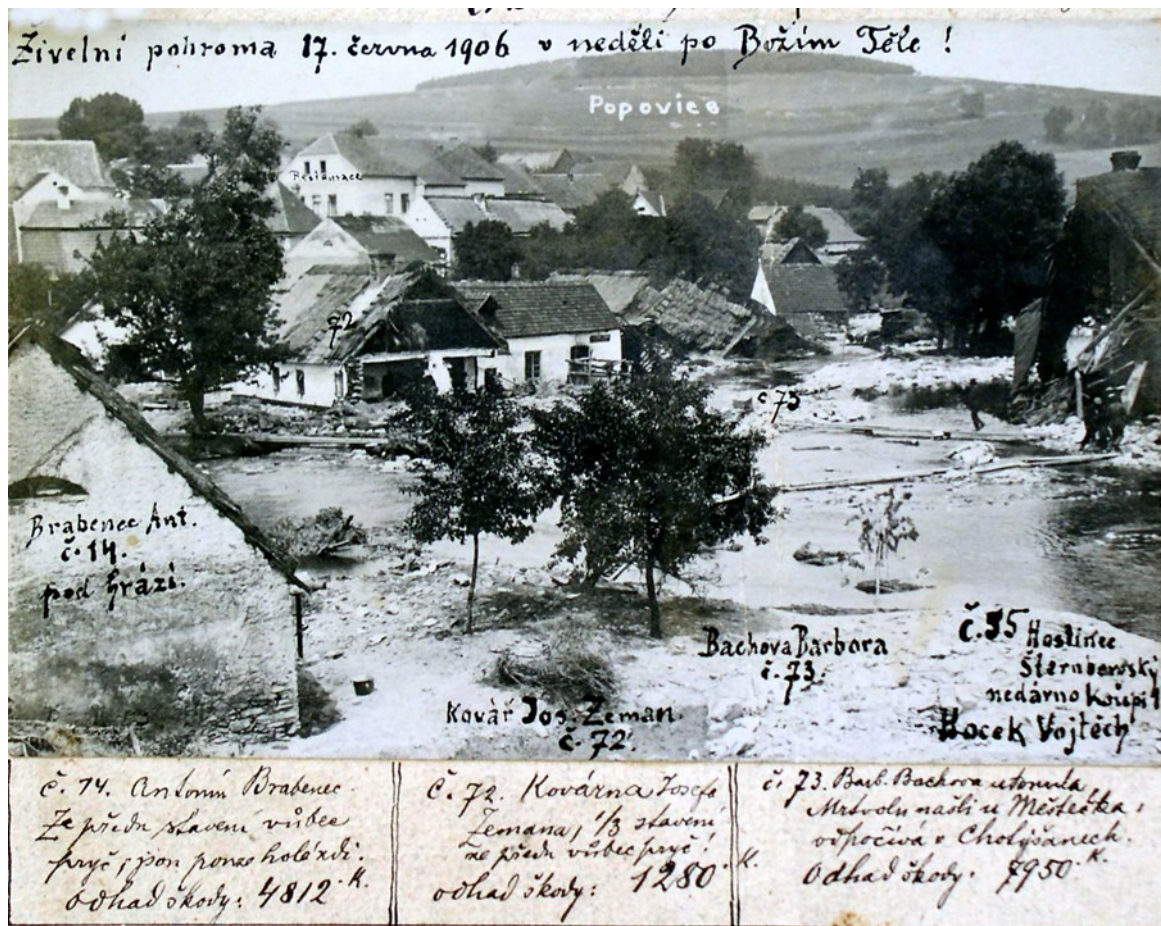 Živelní pohroma 17. června 1906 v neděli po Božím Těle!
Popovice
Restaurace
72
č 73
Brabenec Ant.
č. 14.
pod hrází.
Bachova Barbora
č. 73.
Kovář Jos. Zeman.
č. 72.
č. 35 Hostinec
Šternberský
nedávno koupil
Kocek Vojtěch
č. 14. Antonín Brabenec.
Ze předu stavení vůbec
pryč, jsou pouze holé zdi.
odhad škody: 4812 K.
Č. 72. Kovárna Josefa
Zemana, 1/3 stavení
ze předu vůbec pryč!
odhad škody: 1280 K.
č. 73. Barb. Bachova utonula,
Mrtvolu našli u Městečka,
odpočívá v Chotýšanech.
Odhad škody. 7950 K.